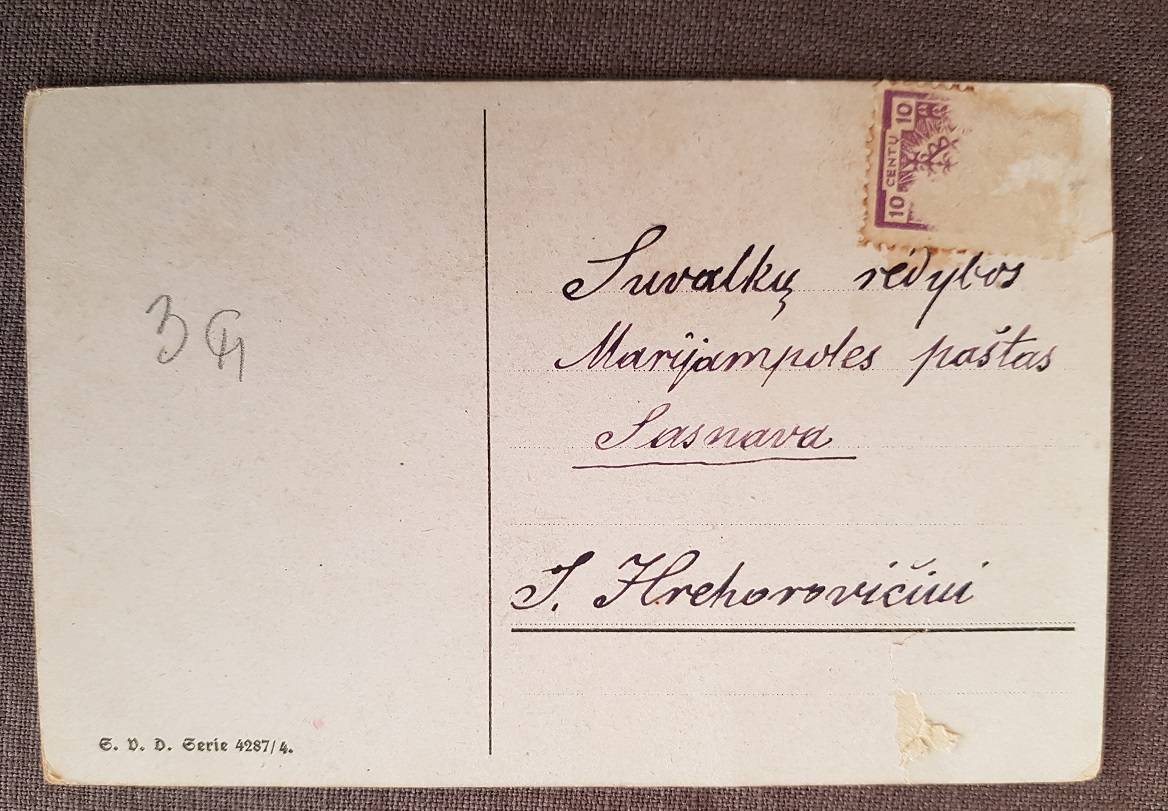 10 CENTŲ 10
Suvalkų rėdybos
Marijampoles paštas
Sasnava
J. Hrehorovičiui
S. V. D. Serie 4287/4.